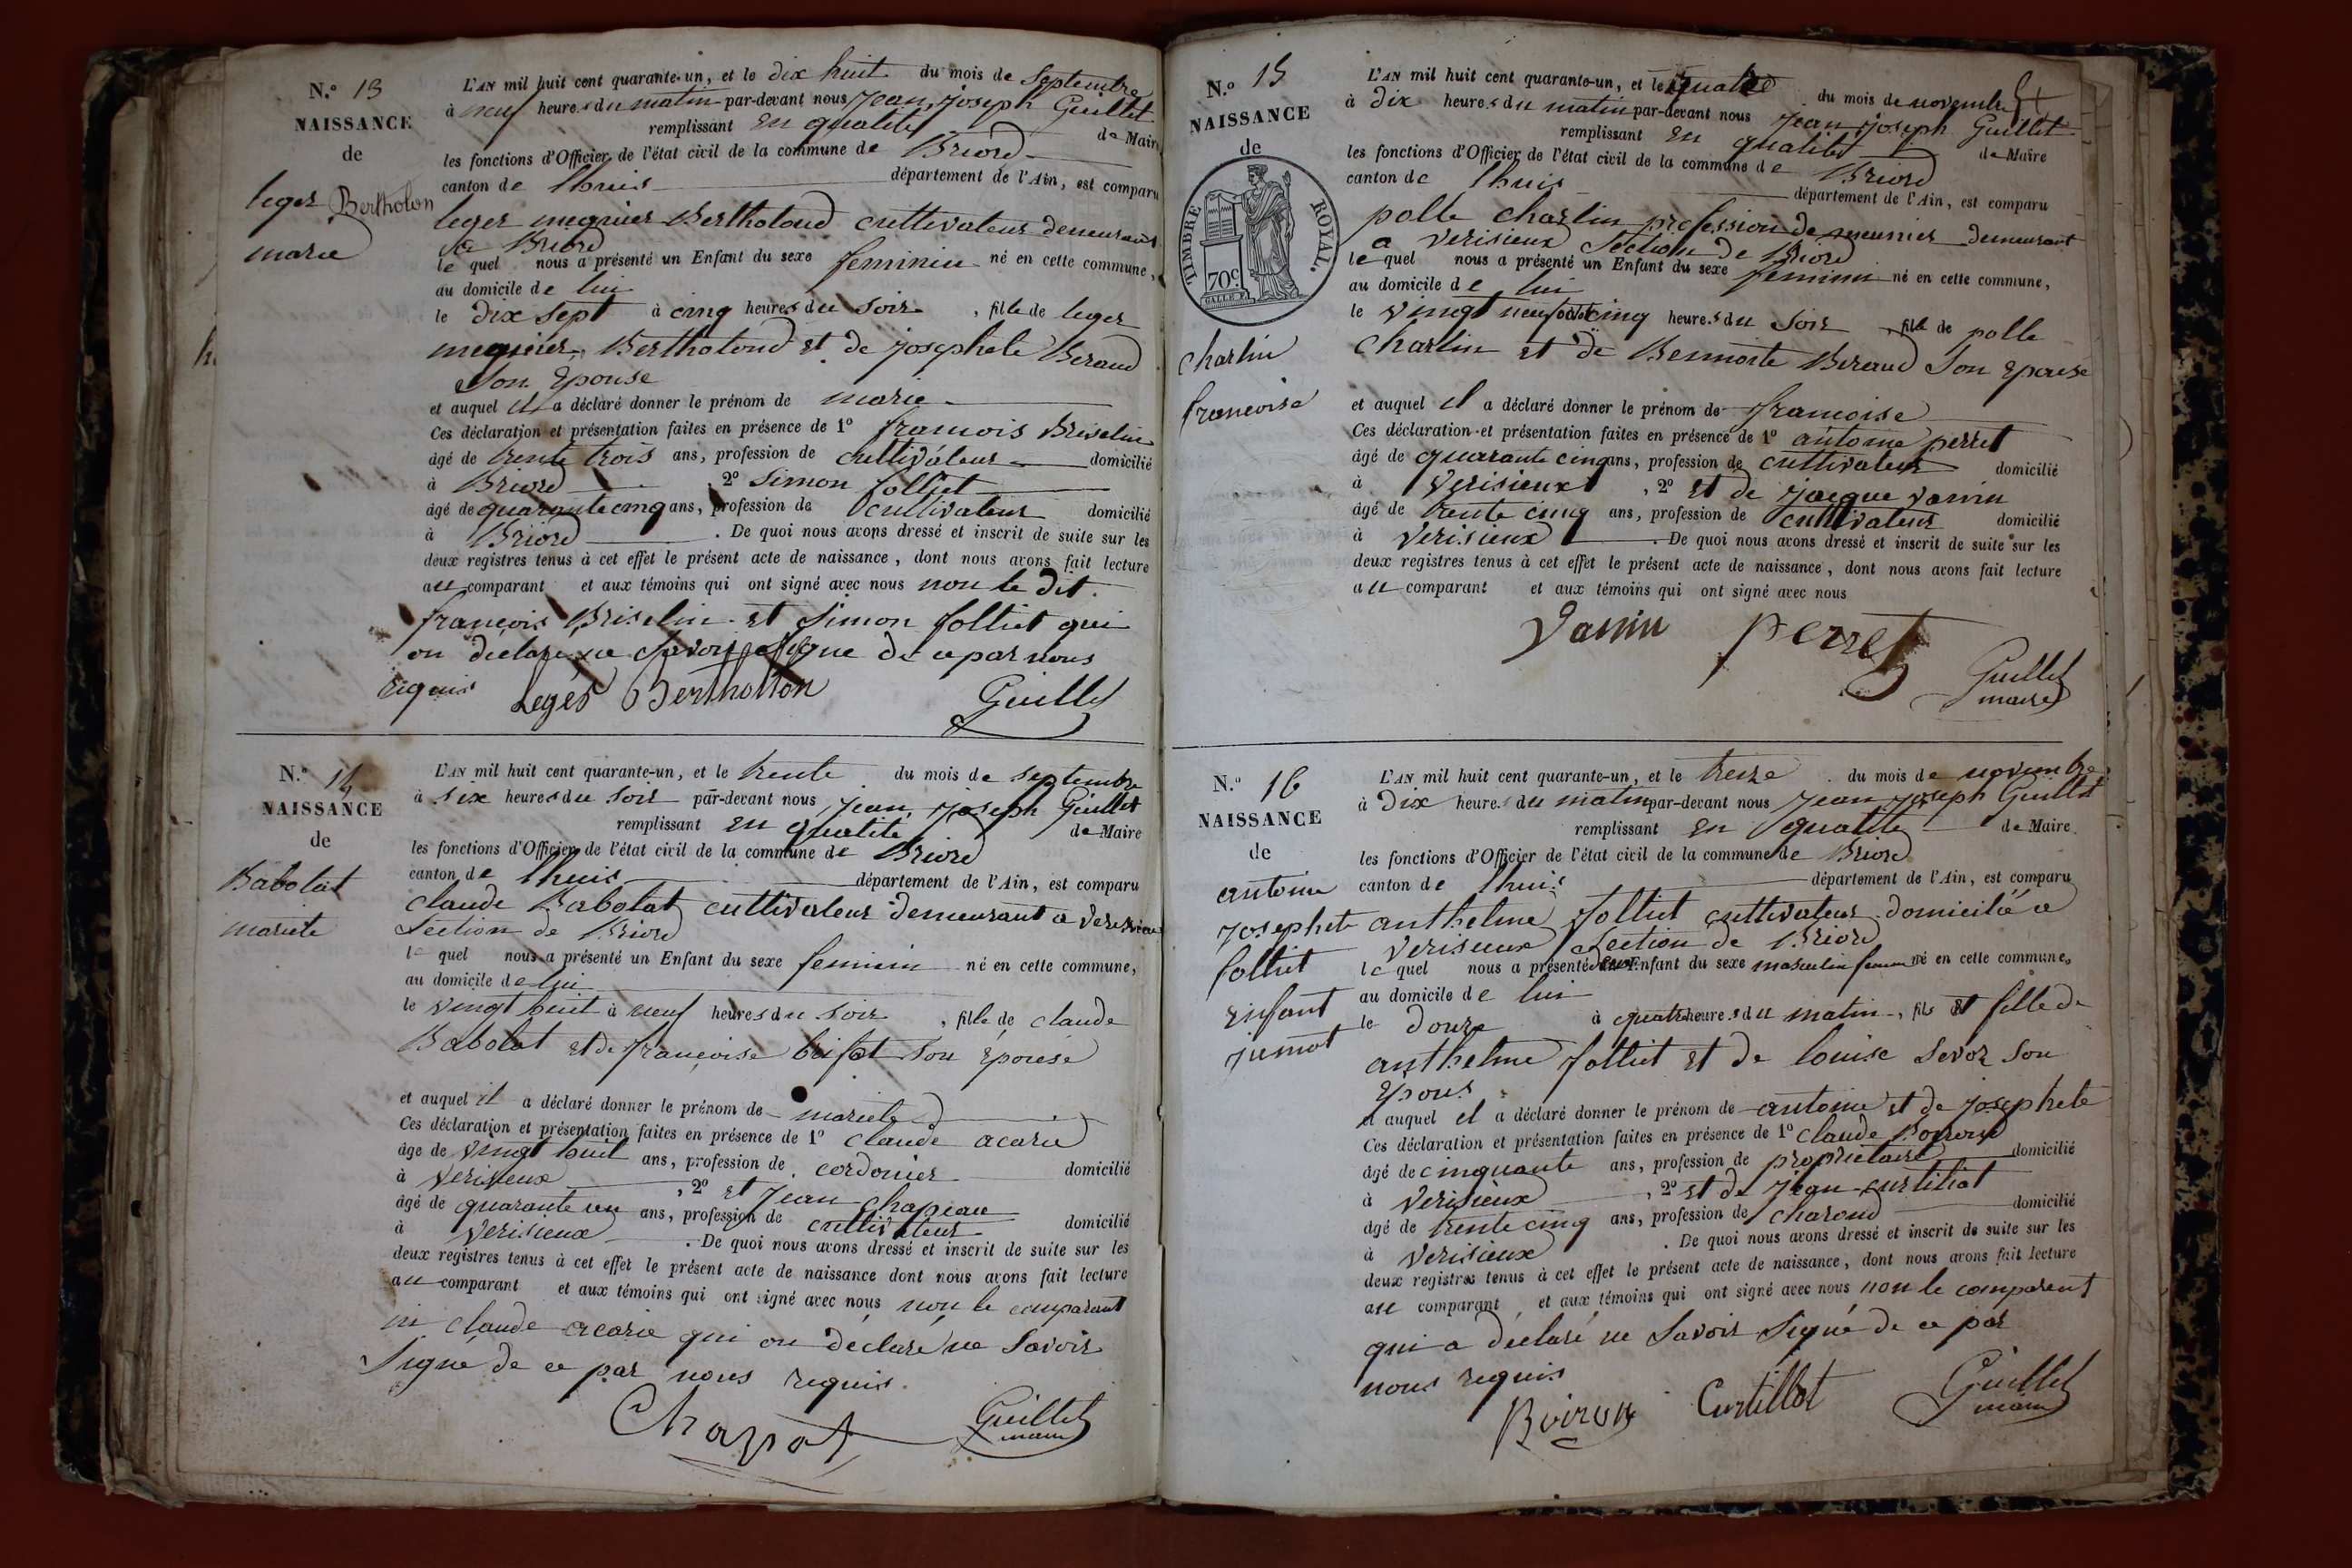 N.º 13
NAISSANCE
de
leger Bertholon
marie
L'AN mil huit cent quarante-un, et le dix huit du mois de Septembre
à neuf heures du matin par-devant nous Jean joseph Guillet
remplissant en qualité de Maire
les fonctions d'Officier de l'état civil de la commune de Briord
canton de lhuis département de l'Ain, est comparu
leger megnier Berthotoud cultivateur demeurant
a Briord
le quel nous a présenté un Enfant du sexe feminin né en cette commune,
au domicile de lui
le dix sept à cinq heures du soir, fille de leger
megnier Berthotoud et de josephete Beraud
Son Epouse
et auquel il a déclaré donner le prénom de marie
Ces déclaration et présentation faites en présence de 1º francois Briselin
âgé de trente trois ans, profession de cultivateur domicilié
à Briord 2º Simon folliet
âgé de quarante cinq ans, profession de cultivateur domicilié
à Briord . De quoi nous avons dressé et inscrit de suite sur les
deux registres tenus à cet effet le présent acte de naissance, dont nous avons fait lecture
au comparant et aux témoins qui ont signé avec nous non le dit
francois Briselin et Simon folliet qui
on déclaré ne Savoir Signe de ce par nous
requis Legés Bertholton Guillet
N.º 14
NAISSANCE
de
Babolat
mariete
L'AN mil huit cent quarante-un, et le trente du mois de septembre
à six heures du soir par-devant nous jean joseph Guillet
remplissant en qualité de Maire
les fonctions d'Officier de l'état civil de la commune de Briord
canton de lhuis département de l'Ain, est comparu
claude Babolat cultivateur demeurant a verisieux
Section de Briord
le quel nous a présenté un Enfant du sexe feminin né en cette commune,
au domicile de lui
le vingt huit à neuf heures du soir, fille de claude
Babolat et de françoise brifat Son Epouse
et auquel il a déclaré donner le prénom de mariete
Ces déclaration et présentation faites en présence de 1º claude acarie
âge de vingt huit ans, profession de cordonier domicilié
à verisieux, 2º et jean chapeau
âgé de quarante un ans, profession de cultivateur domicilié
à verisieux . De quoi nous avons dressé et inscrit de suite sur les
deux registres tenus à cet effet le présent acte de naissance dont nous avons fait lecture
au comparant et aux témoins qui ont signé avec nous non le comparant
ni claude acarie qui on déclaré ne Savoir
Signé de ce par nous requis.
Chapot Guillet
maire
N.º 15
NAISSANCE
de
TIMBRE ROYAL.
70c
charlin
francoise
L'AN mil huit cent quarante-un, et le quatre du mois de novembre
à dix heures du matin par-devant nous jean joseph Guillet
remplissant en qualité de Maire
les fonctions d'Officier de l'état civil de la commune de Briord
canton de lhuis département de l'Ain, est comparu
polle charlin profession de meunier demeurant
a verisieux Section de Briord
le quel nous a présenté un Enfant du sexe feminin né en cette commune,
au domicile de lui
le vingt neuf cinq heures du soir, fille de polle
charlin et de Bennoite Beraud Son Epouse
et auquel il a déclaré donner le prénom de francoise
Ces déclaration et présentation faites en présence de 1º antoine perret
âgé de quarante cinq ans, profession de cultivateur domicilié
à verisieux, 2º et de jacque vannin
âgé de trente cinq ans, profession de cultivateur domicilié
à verisieux . De quoi nous avons dressé et inscrit de suite sur les
deux registres tenus à cet effet le présent acte de naissance, dont nous avons fait lecture
au comparant et aux témoins qui ont signé avec nous
Vannin perret
Guillet
maire
N.º 16
NAISSANCE
de
antoine
josephete
folliet
enfant
jumot
L'AN mil huit cent quarante-un, et le treize du mois de novembre
à dix heures du matin par-devant nous jean joseph Guillet
remplissant en qualité de Maire
les fonctions d'Officier de l'état civil de la commune de Briord
canton de lhuis département de l'Ain, est comparu
anthelme folliet cultivateur domicilié a
verisieux Section de Briord
le quel nous a présenté deux Enfant du sexe masculin femin né en cette commune,
au domicile de lui
le douze à quatre heures du matin, fils et fille de
anthelme folliet et de louise Sevoz Son
Epous
et auquel il a déclaré donner le prénom de antoine et de josephete
Ces déclaration et présentation faites en présence de 1º claude Boiroud
âgé de cinquante ans, profession de proprietaire domicilié
à verisieux, 2º et de jean curtiliat
âgé de trente cinq ans, profession de charond domicilié
à verisieux . De quoi nous avons dressé et inscrit de suite sur les
deux registres tenus à cet effet le présent acte de naissance, dont nous avons fait lecture
au comparant et aux témoins qui ont signé avec nous non le comparent
qui a déclaré ne Savoir Signé de ce par
nous requis
Boiron Curtillot Guillet
maire